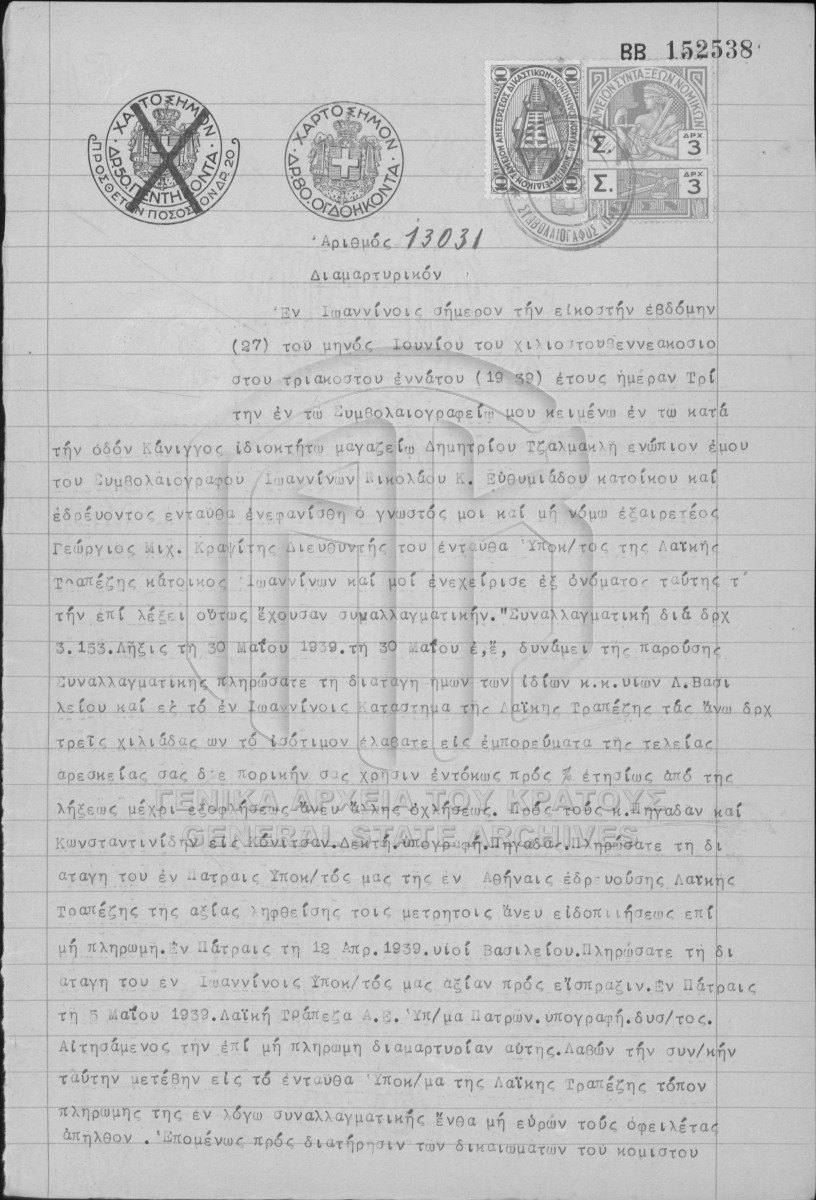 BB 152538
ΧΑΡΤΟΣΗΜΟΝ
ΔΡ.50.ΠΕΝΤΗΚΟΝΤΑ
ΠΡΟΣΘΕΤΟΝ ΠΟΣΟΣΤΟΝ ΔΡ. 20
ΧΑΡΤΟΣΗΜΟΝ
ΔΡ.80.ΟΓΔΟΗΚΟΝΤΑ
10 10
10 10
ΤΑΜΕΙΟΝ ΣΥΝΤΑΞΕΩΝ ΝΟΜΙΚΩΝ
Σ. ΔΡΧ 3
Σ. ΔΡΧ 3
Ἀριθμός 13031
Διαμαρτυρικόν
Ἐν Ιωαννίνοις σήμερον τήν εἰκοστήν ἑβδόμην
(27) τοῦ μηνός Ιουνίου του χιλιοστουθεννεακοσιο
στου τριακοστου ἐννάτου (1939) ἔτους ἡμέραν Τρί
την ἐν τῶ Συμβολαιογραφείῳ μου κειμένω ἐν τω κατά
τήν ὁδόν Κάνιγγος ἰδιοκτήτω μαγαζείῳ Δημητρίου Τζαλμακλῆ ενώπιον ἐμου
του Συμβολαιογραφου Ιωαννίνων Νικολάου Κ. Εὐθυμιάδου κατοίκου καί
ἑδρέυοντος ενταῦθα ἀνεφανίσθη ὁ γνωστός μοι καί μή νόμω ἐξαιρετέος
Γεώργιος Μιχ. Κραψίτης Διευθυντής του ἐνταυθα Ὑποκ/τος της Λαϊκῆς
Τραπέζης κάτοικος Ἰωαννίνων καί μοί ἐνεχείρισε ἐξ ὀνόματος ταύτης τ'
τήν ἐπί λέξει οὕτως ἔχουσαν συναλλαγματικήν."Συναλλαγματική διά δρχ
3.153.Λῆξις τῆ 30 Μαΐου 1939.τῆ 30 Μαΐου ἐ,ἔ, δυνάμει τῆς παρούσης
Συναλλαγματικης πληρώσατε τῆ διαταγῆ ἡμων των ἰδίων κ.κ.υιων Λ.Βασι
λείου καί εἰς τό ἐν Ιωαννίνοις Κατάστημα τῆς Λαϊκης Τραπέζης τάς ἄνω δρχ
τρεῖς χιλιάδας ων τό ἰσότιμον ἐλάβατε εἰς ἐμπορεύματα τῆς τελείας
ἀρεσκείας σας δ-ε πορικήν σας χρῆσιν ἐντόκως πρός % ἐτησίως ἀπό τῆς
λήξεως μέχρι εξοφλήσεως ἄνευ ἄλλης ὀχλήσεως. Πρός τούς κ.Πηγαδαν καί
Κωνσταντινίδην εἰς Κόνιτσαν.Δεκτή.ὑπογραφή.Πηγαδᾶς.Πληρώσατε τῆ δι
αταγῆ του ἐν Πατραις Υποκ/τός μας τῆς ἐν Αθήναις ἑδρευούσης Λαϊκῆς
Τραπέζης τῆς αξίας ληφθείσης τοις μετρητοις ἄνευ εἰδοπιιήσεως επί
μή πληρωμῆ.Εν Πάτραις τῆ 12 Απρ.1939.υἱοί Βασιλείου.Πληρώσατε τῆ δι
αταγῆ του ἐν Ιωαννίνοις Υποκ/τός μας ἀξίαν πρός εἴσπραξιν.Εν Πάτραις
τῆ 5 Μαΐου 1939.Λαϊκή Τράπεζα Α.Ε.Ὑπ/μα Πατρῶν.υπογραφή.δυσ/τος.
Αἰτησάμενος τήν ἐπί μή πληρωμῆ διαμαρτυρίαν αὐτῆς.Λαβών τήν συν/κήν
ταύτην μετέβην εἰς τό ἐνταυθα Ὑποκ/μα τῆς Λαϊκης Τραπέζης τόπον
πληρωμῆς τῆς ἐν λόγω συναλλαγματικῆς ἔνθα μή εὑρών τούς ὀφειλέτας
ἀπῆλθον . Ἑπομένως πρός διατήρησιν τῶν δικαιωματων του κομιστου
ΓΕΝΙΚΑ ΑΡΧΕΙΑ ΤΟΥ ΚΡΑΤΟΥΣ
GENERAL STATE ARCHIVES